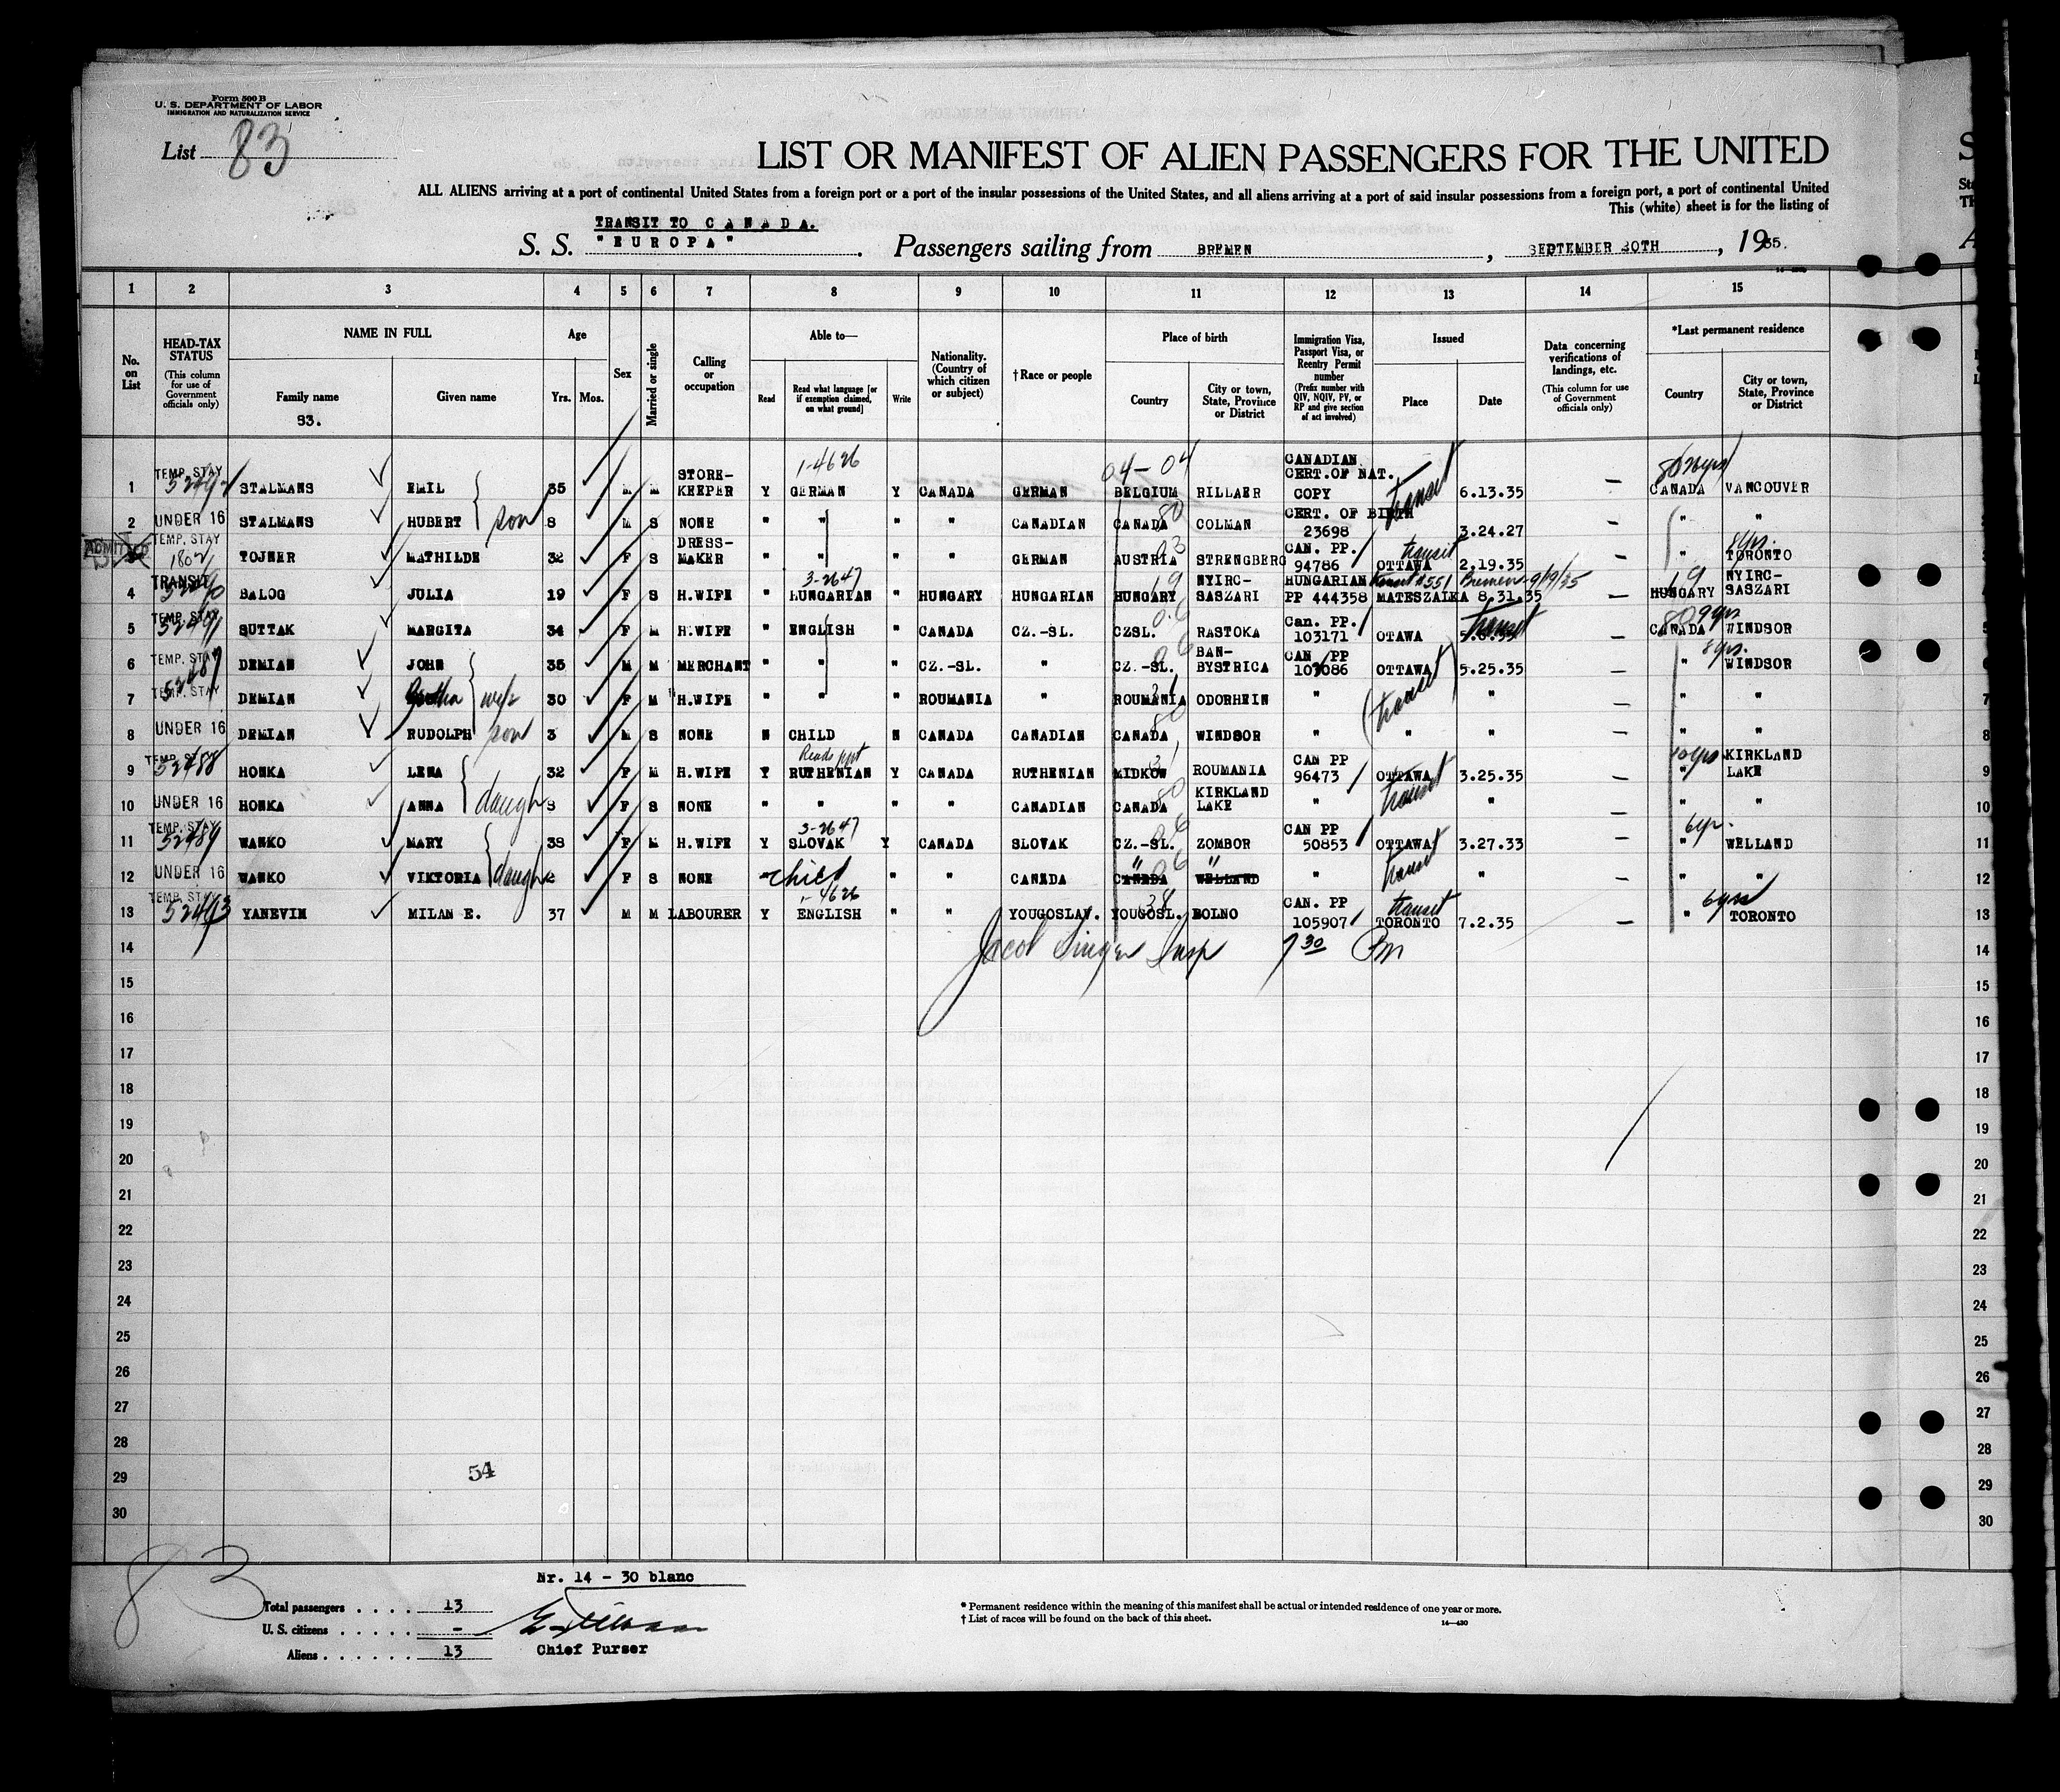 Form 500 B
U. S. DEPARTMENT OF LABOR
IMMIGRATION AND NATURALIZATION SERVICE
List 83
LIST OR MANIFEST OF ALIEN PASSENGERS FOR THE UNITED
ALL ALIENS arriving at a port of continental United States from a foreign port or a port of the insular possessions of the United States, and all aliens arriving at a port of said insular possessions from a foreign port, a port of continental United
This (white) sheet is for the listing of
TRANSIT TO CANADA.
S. S. "EUROPA". Passengers sailing from BREMEN, SEPTEMBER 30TH, 1935.
1 2 3 4 5 6 7 8 9 10 11 12 13 14 15
No. on List
HEAD-TAX STATUS (This column for use of Government officials only)
NAME IN FULL Family name Given name
83.
Age Yrs. Mos.
Sex
Married or single
Calling or occupation
Able to— Read Read what language [or if exemption claimed, on what ground] Write
Nationality. (Country of which citizen or subject)
†Race or people
Place of birth Country City or town, State, Province or District
Immigration Visa, Passport Visa, or Reentry Permit number (Prefix number with QIV, NQIV, PV, or RP and give section of act involved)
Issued Place Date
Data concerning verifications of landings, etc. (This column for use of Government officials only)
*Last permanent residence Country City or town, State, Province or District
1 TEMP. STAY STALMANS EMIL 35 M M STORE-KEEPER Y 1-4626 GERMAN Y CANADA GERMAN 04-04 BELGIUM RILLAER CANADIAN CERT.OF NAT. COPY transit 6.13.35 — CANADA VANCOUVER
2 UNDER 16 STALMANS HUBERT son 8 M S NONE " " " " CANADIAN CANADA COLMAN CERT. OF BIRTH 23698 3.24.27 — " "
3 ADMITTED TEMP. STAY TOJNER MATHILDE 32 F S DRESS-MAKER " " " " GERMAN AUSTRIA STRENGBERG CAN. PP. 94786 transit OTTAWA 2.19.35 — " 8yrs. TORONTO
4 TRANSIT BALOG JULIA 19 F S H.WIFE " 3-2647 HUNGARIAN " HUNGARY HUNGARIAN HUNGARY NYIRC-SASZARI HUNGARIAN PP 444358 MATESZALKA Bremen 9/19/35 8.31.35 — HUNGARY NYIRC-SASZARI
5 TEMP. STAY SUTTAK MARGITA 34 F M H.WIFE " ENGLISH " CANADA CZ.-SL. CZSL. RASTOKA Can. PP. 103171 OTAWA transit — CANADA 9yrs WINDSOR
6 TEMP. STAY 52487 DEMIAN JOHN 35 M M MERCHANT " " " CZ.-SL. " CZ.-SL. BAN-BYSTRICA CAN PP OTTAWA 5.25.35 — " 8yrs. WINDSOR
7 TEMP. STAY DEMIAN wife 30 F M H.WIFE " " " ROUMANIA " ROUMANIA ODORHEIN " transit " — " "
8 UNDER 16 DEMIAN RUDOLPH son 3 M S NONE N CHILD N CANADA CANADIAN CANADA WINDSOR " " " — " "
9 TEMP. STAY 52488 HONKA LENA 32 F M H.WIFE Y Reads ppt RUTHENIAN Y CANADA RUTHENIAN MIDKOW ROUMANIA CAN PP 96473 OTTAWA 3.25.35 — " 10yrs KIRKLAND LAKE
10 UNDER 16 HONKA ANNA daugh 9 F S NONE " " " " CANADIAN CANADA KIRKLAND LAKE " transit " — " "
11 TEMP. STAY 52489 WANKO MARY 38 F M H.WIFE Y 3-2647 SLOVAK Y CANADA SLOVAK CZ.-SL. ZOMBOR CAN PP 50853 OTTAWA 3.27.33 — " 6yr. WELLAND
12 UNDER 16 WANKO VIKTORIA daugh F S NONE child " " CANADA " CANADA " WELLAND " transit " — " "
13 TEMP. STAY 52493 YANEVIM MILAN E. 37 M M LABOURER Y 1-4626 ENGLISH " " YOUGOSLAV. YOUGOSL. BOLNO CAN. PP 105907 transit TORONTO 7.2.35 — " 6yrs TORONTO
14 Jacob Singer Insp 7 30 Pm 14
15 15
16 16
17 17
18 18
19 19
20 20
21 21
22 22
23 23
24 24
25 25
26 26
27 27
28 28
29 54 29
30 30
83
Nr. 14 - 30 blanc
Total passengers . . . . 13
U. S. citizens . . . . . -
Aliens . . . . . . 13
Chief Purser
* Permanent residence within the meaning of this manifest shall be actual or intended residence of one year or more.
† List of races will be found on the back of this sheet.
14—430